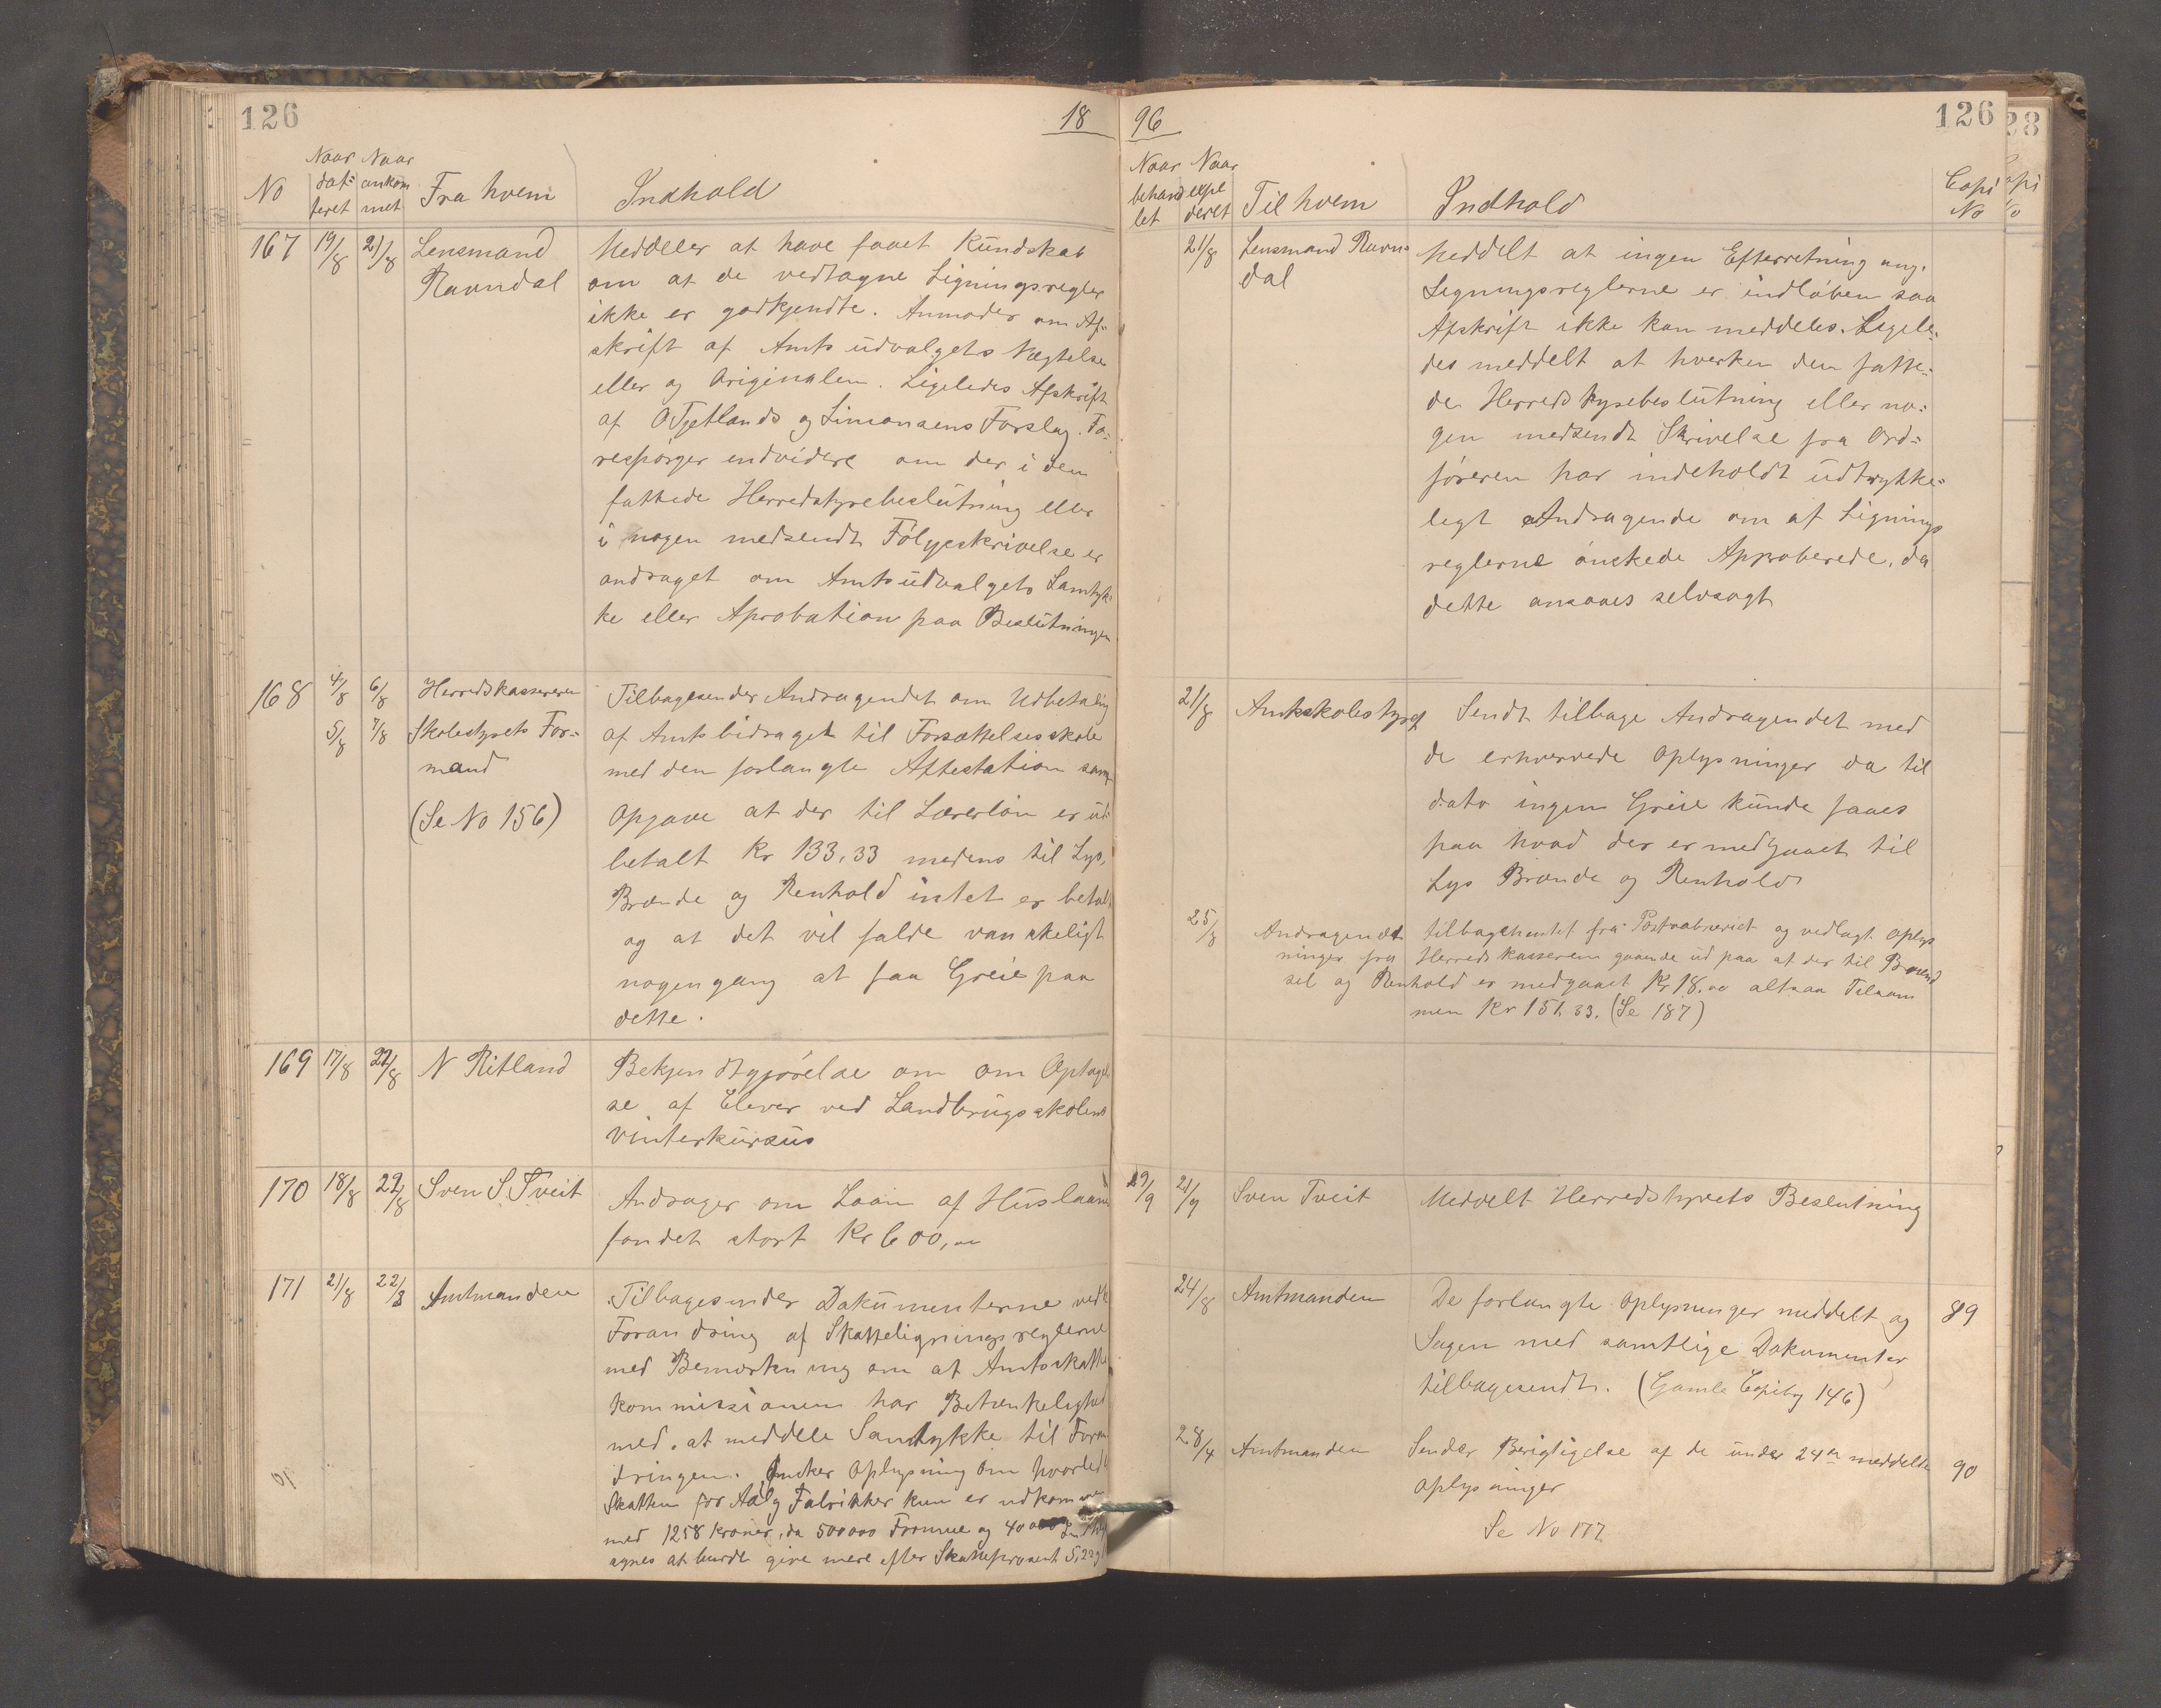 126
18
Naar Naar
No dat= ankom Fra hvem Indhold
teret met
167 19/8 21/8 Lensmand Meddeler at have faaet Kundskab
Ravndal om at de vedtagne Ligningsregler
ikke er godkjendte. Anmoder om Af=
skrift af Amtsudvalgets Nægtelse
eller og Originalen. Ligeledes Afskrift
af O Tjetlands og Simonsens Forslag. Fo=
respørger endvidere om der i den
fattede Herredstyrebeslutning eller
i nogen medsendt Følgeskrivelse er
andraget om Amtsudvalgets Samtyk=
ke eller Aprobation paa Beslutningen
168 4/8 6/8 Herredskassereren Tilbagesender Andragendet om Udbetaling
5/8 7/8 Skolestyrets For= af Amtsbidraget til Forsættelsesskole
mand med den forlangte Attestation samt
(Se No 156) Opgave at der til Lærerløn er ud
betalt Kr 133,33 medens til Lys,
Brænde og Renhold intet er betalt
og at det vil falde vanskeligt
nogengang at faa Greie paa
dette.
169 17/8 22/8 N Ritland Bekjendtgjørelse om om Optagel
se af Elever ved Landbrugsskolens
Vinterkursus
170 18/8 22/8 Sven S Tveit Andrager om Laan af Huslaane
fondet stort Kr 600,00
171 21/8 22/8 Amtmanden Tilbagesender Dokumenterne vedk
Forandring af Skatteligningsreglerne
med Bemærkning om at Amtsskatte
kommissionen har Betænkelighed
med at meddele Samtykke til Foran
dringen. Ønsker Oplysning om hvorledes
Skatten for Aalg Fabrikker kun er udkommen
med 1258 kroner, da 500000 Formue og 40000
synes at burde give mere efter Skatteprocent 5,22
96
126
Naar Naar
behand expe Til hvem Indhold Copi
let deret No
21/8 Lensmand Ravn= Meddelt at ingen Efterretning ang.
dal Ligningsreglerne er indløben saa
Afskrift ikke kan meddeles. Ligele=
des meddelt at hverken den fatte=
de Herredstyrebeslutning eller no=
gen medsendt Skrivelse fra Ord=
føreren har indeholdt udtrykke=
legt Andragende om at Lignings
reglerne ønskede Approberede, da
dette ansaaes selvsagt
21/8 Amtsskolestyret Sendt tilbage Andragendet med
de erhvervede Oplysninger da til
dato ingen Greie kunde faaes
paa hvad der er medgaaet til
Lys Brænde og Renhold
25/8 Andragendet tilbagehentet fra Postaabneriet og vedlagt oplys
ninger fra Herredskasseren gaaende ud paa at der til Brænd
sel og Renhold er medgaaet Kr 18.00 altsaa Tilsam
men Kr 151.33. (Se 187)
19/9 21/9 Sven Tveit Meddelt Herredstyrets Beslutning
24/8 Amtmanden De forlangte Oplysninger meddelt og 89
Sagen med samtlige Dokumenter
tilbagesendt. (Gamle Copibog 146)
28/4 Amtmanden Sender Berigtigelse af de under 24de meddelte 90
oplysninger
Se No 177